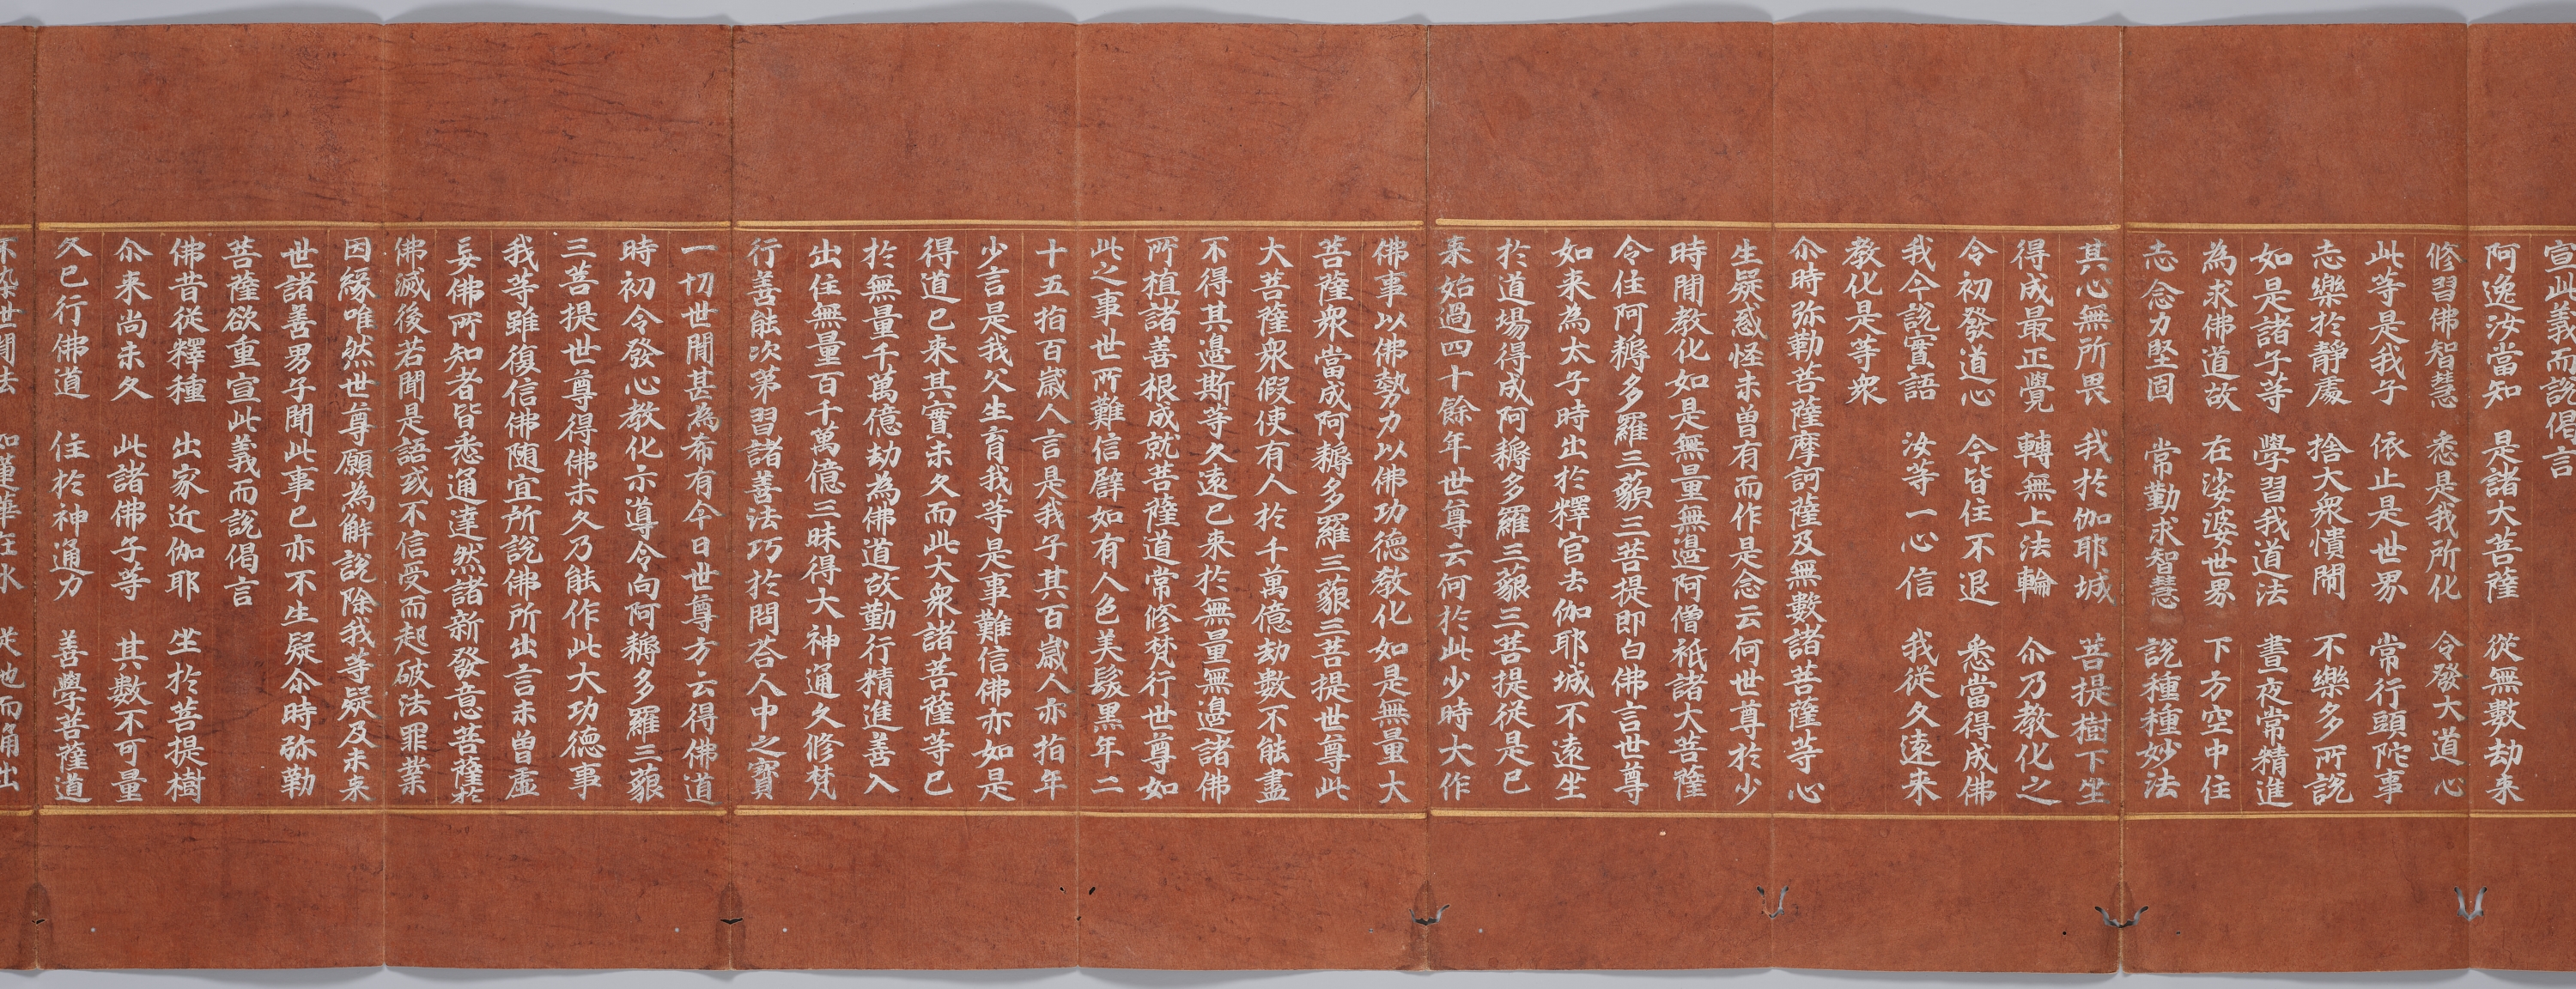 宣此義而說偈言
阿逸汝當知 是諸大菩薩 從無數劫来
修習佛智慧 悉是我所化 令發大道心
此等是我子 依止是世界 常行頭陀事
志樂於靜處 捨大衆憒閙 不樂多所說
如是諸子等 學習我道法 晝夜常精進
為求佛道故 在娑婆世界 下方空中住
志念力堅固 常勤求智慧 說種種妙法
其心無所畏 我於伽耶城 菩提樹下坐
得成最正覺 轉無上法輪 尒乃教化之
令初發道心 今皆住不退 悉當得成佛
我今說實語 汝等一心信 我從久遠来
教化是等衆
尒時弥勒菩薩摩訶薩及無數諸菩薩等心
生疑惑怪未曾有而作是念云何世尊於少
時間教化如是無量無邊阿僧祇諸大菩薩
令住阿耨多羅三藐三菩提即白佛言世尊
如来為太子時出於釋宮去伽耶城不遠坐
於道場得成阿耨多羅三藐三菩提從是已
来始過四十餘年世尊云何於此少時大作
佛事以佛勢力以佛功德教化如是無量大
菩薩衆當成阿耨多羅三藐三菩提世尊此
大菩薩衆假使有人於千萬億劫數不能盡
不得其邊斯等久遠已来於無量無邊諸佛
所植諸善根成就菩薩道常修梵行世尊如
此之事世所難信譬如有人色美髮黑年二
十五指百歳人言是我子其百歳人亦指年
少言是我父生育我等是事難信佛亦如是
得道已来其實未久而此大衆諸菩薩等已
於無量千萬億劫為佛道故勤行精進善入
出住無量百千萬億三昧得大神通久修梵
行善能次第習諸善法巧於問荅人中之寳
一切世間甚為希有今日世尊方云得佛道
時初令發心教化示導令向阿耨多羅三藐
三菩提世尊得佛未久乃能作此大功德事
我等雖復信佛随宜所說佛所出言未曽虛
妄佛所知者皆悉通達然諸新發意菩薩於
佛滅後若聞是語或不信受而起破法罪業
因緣唯然世尊願為解說除我等疑及未来
世諸善男子聞此事已亦不生疑尒時弥勒
菩薩欲重宣此義而說偈言
佛昔從釋種 出家近伽耶 坐於菩提樹
尒来尚未久 此諸佛子等 其數不可量
久已行佛道 住於神通力 善學菩薩道
不染世間法 如蓮華在水 從地而涌出